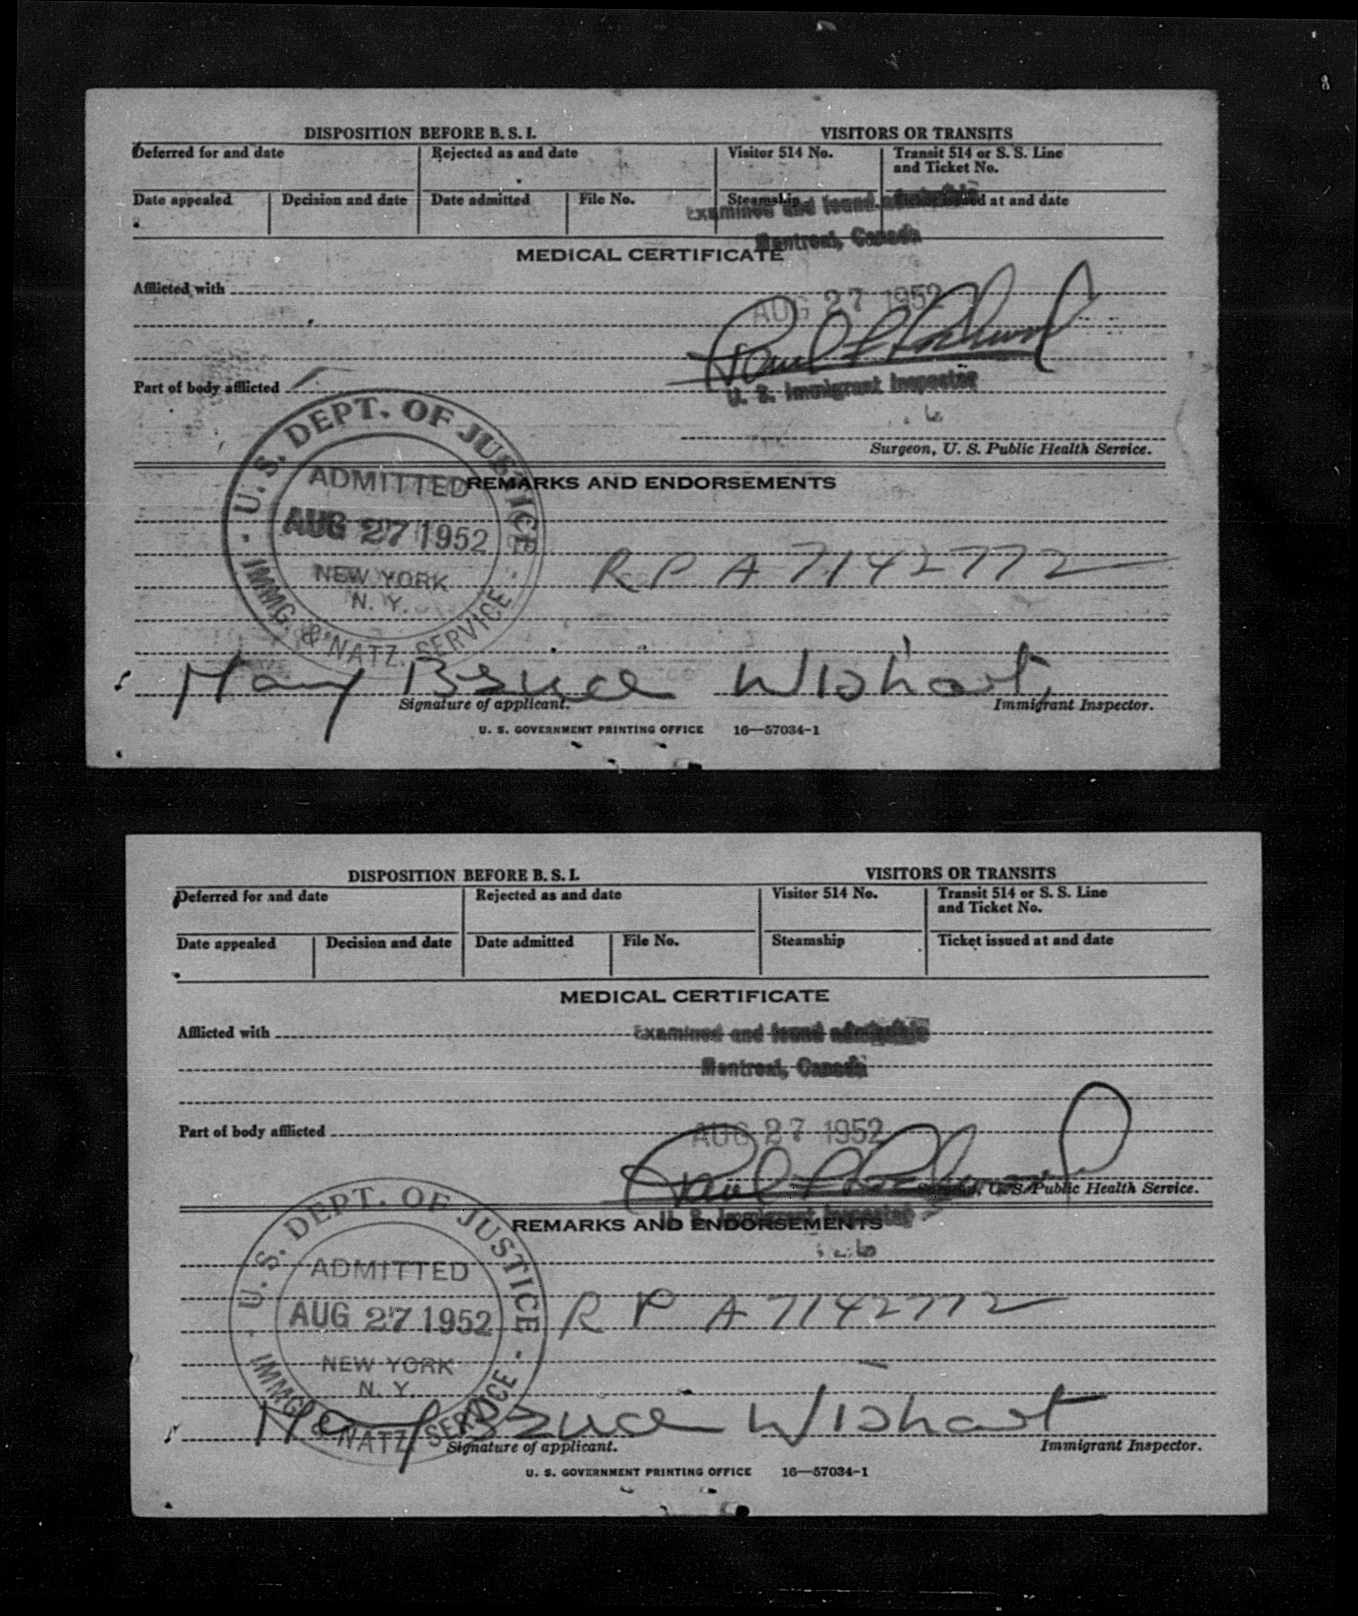 DISPOSITION BEFORE B. S. I. VISITORS OR TRANSITS
Deferred for and date Rejected as and date Visitor 514 No. Transit 514 or S. S. Line
and Ticket No.
Date appealed Decision and date Date admitted File No. Steamship issued at and date
Examined and found admissible
Montreal, Canada
MEDICAL CERTIFICATE
Afflicted with
AUG 27 1952
Paul
Part of body afflicted
U. S. Immigrant Inspector
Surgeon, U. S. Public Health Service.
U. S. DEPT. OF JUSTICE
ADMITTED
REMARKS AND ENDORSEMENTS
AUG 27 1952
NEW YORK
N. Y.
IMMG. & NATZ. SERVICE
R P A 7142772
Mary Bruce Wishart
Signature of applicant. Immigrant Inspector.
U. S. GOVERNMENT PRINTING OFFICE 16—57034-1
DISPOSITION BEFORE B. S. I. VISITORS OR TRANSITS
Deferred for and date Rejected as and date Visitor 514 No. Transit 514 or S. S. Line
and Ticket No.
Date appealed Decision and date Date admitted File No. Steamship Ticket issued at and date
MEDICAL CERTIFICATE
Afflicted with Examined and found admissible
Montreal, Canada
Part of body afflicted
AUG 27 1952
Paul
Surgeon, U. S. Public Health Service.
U. S. Immigrant Inspector
REMARKS AND ENDORSEMENTS
U. S. DEPT. OF JUSTICE
ADMITTED
AUG 27 1952
NEW YORK
N. Y.
IMMG. & NATZ. SERVICE
R P A 7142772
Mary Bruce Wishart
Signature of applicant. Immigrant Inspector.
U. S. GOVERNMENT PRINTING OFFICE 16—57034-1